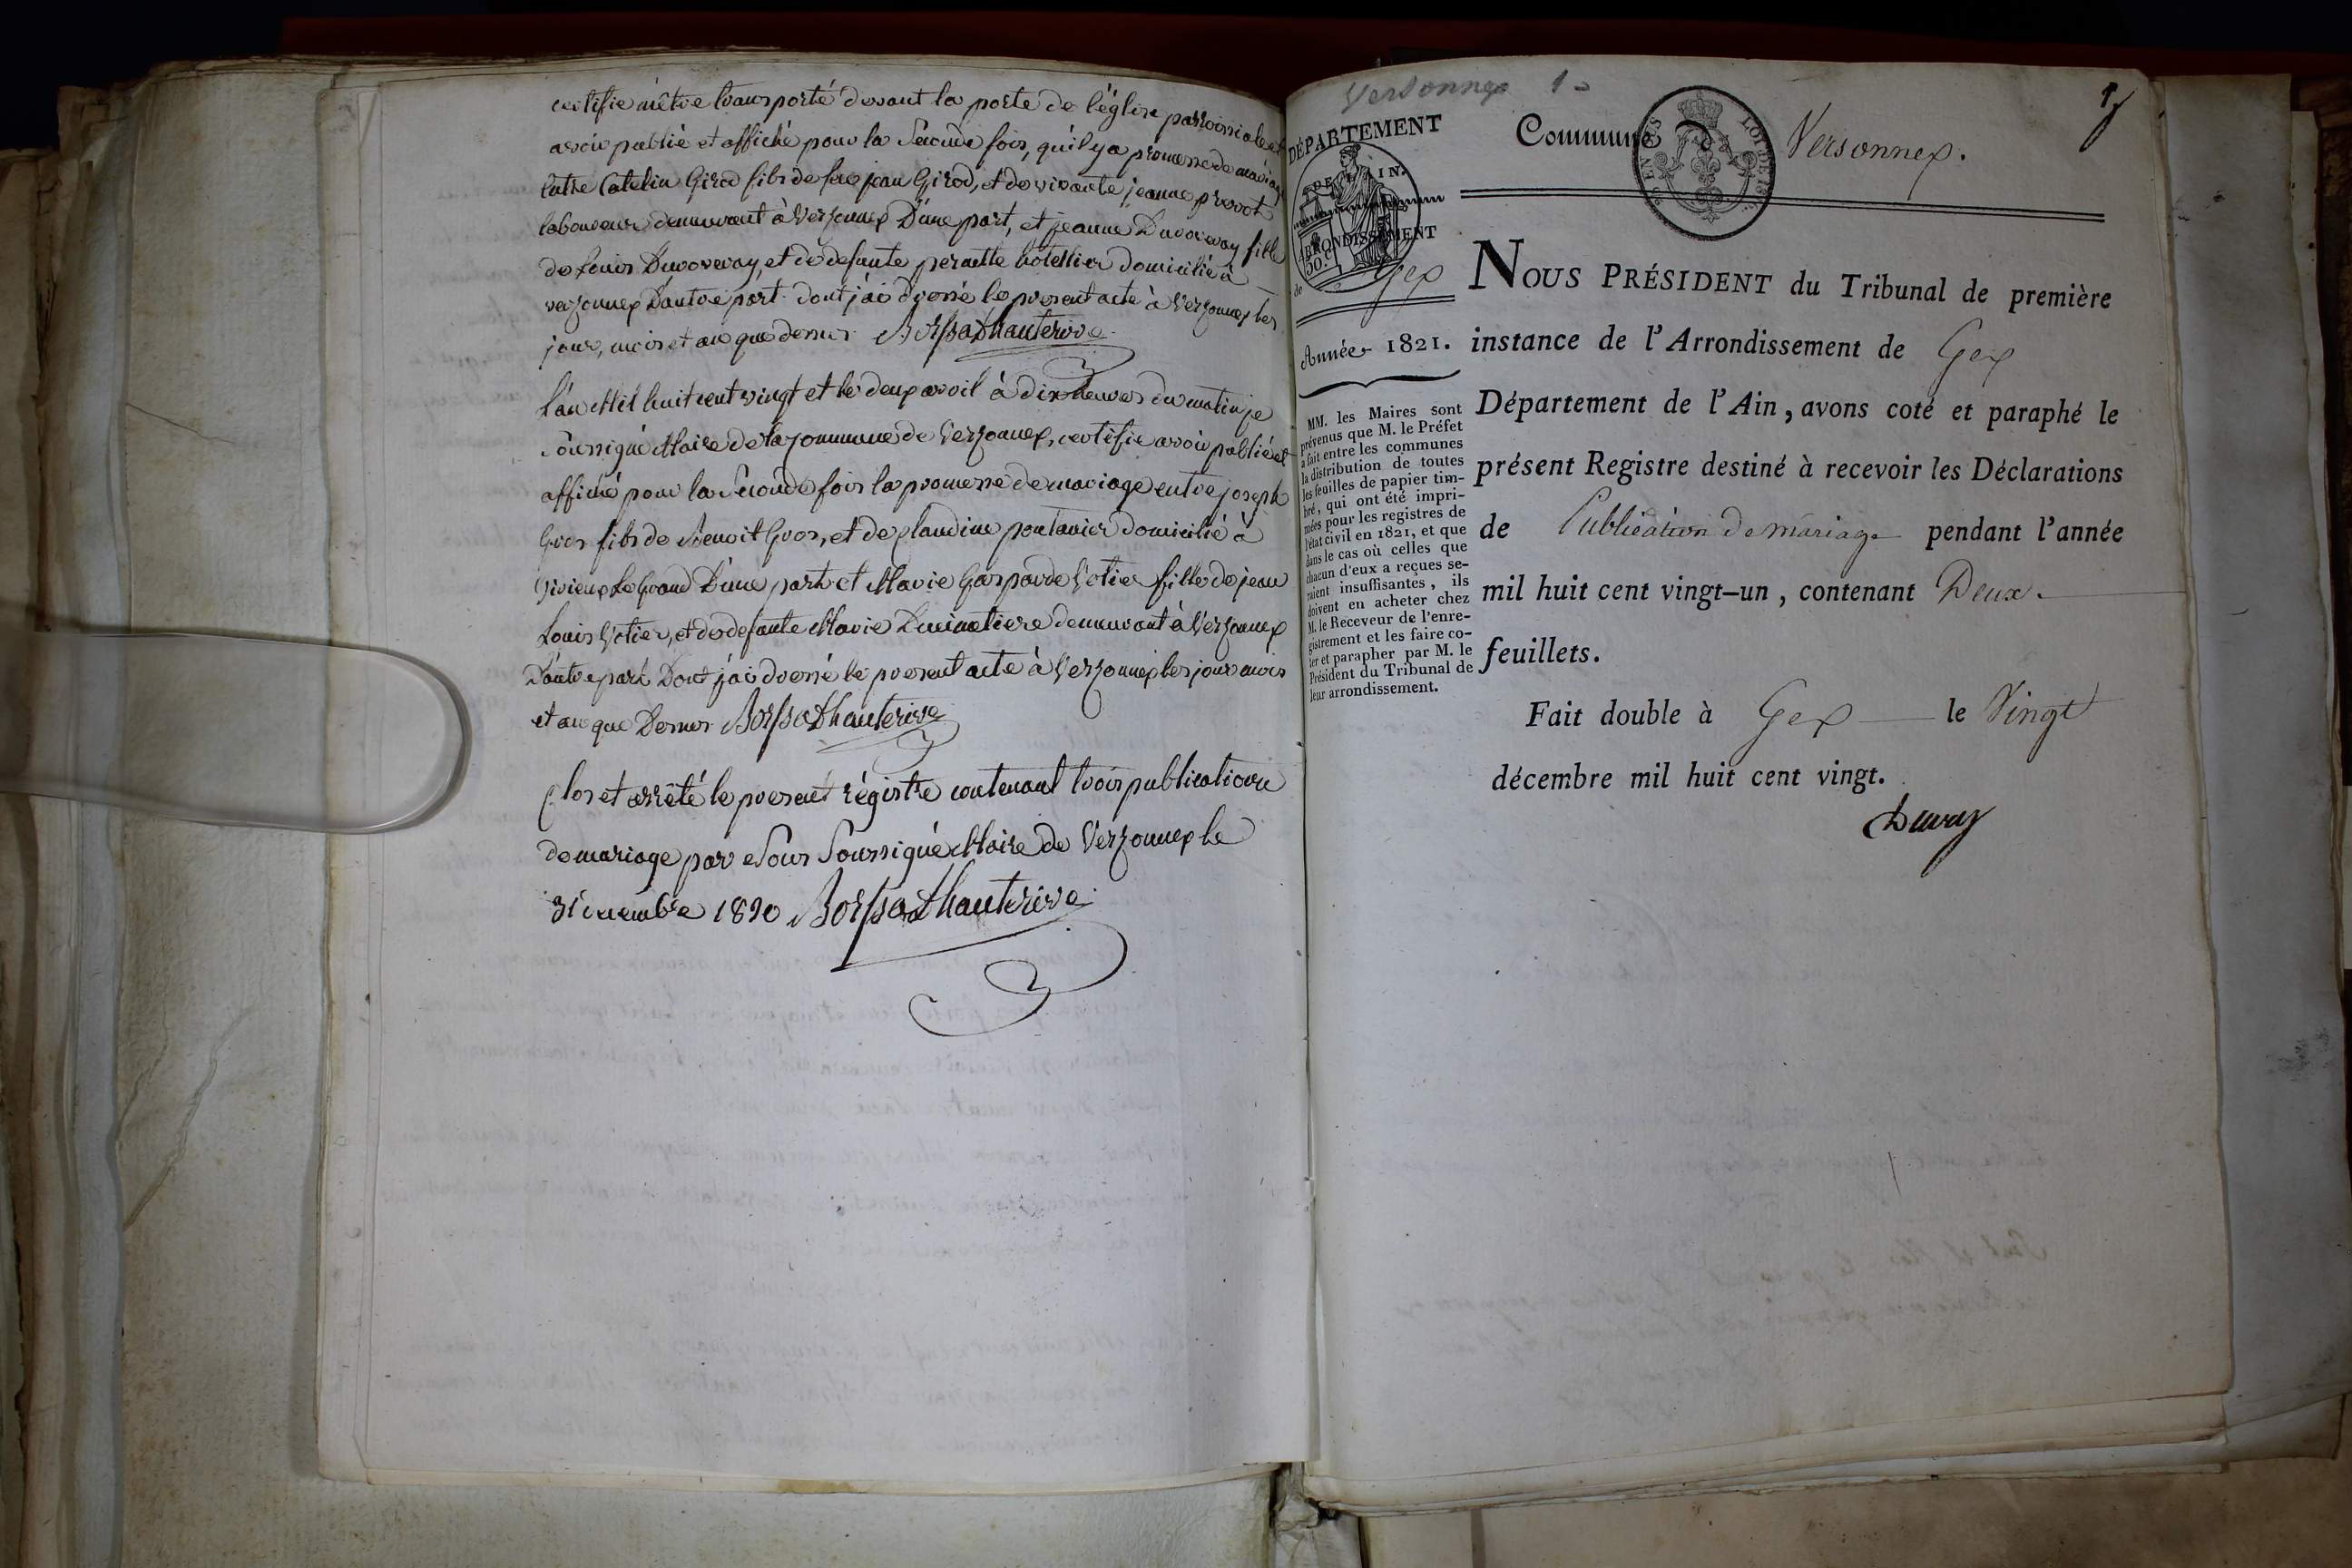 certifie mêtre transporté devant la porte de l'église parroissiale et
avoir publié et affiché pour la seconde fois, qu'il y a promesse de mariage
entre Catelin Girod fils de feu jean Girod, et de vivante jeanne prevot
laboureur demeurant à Verzonnex D'une part, et jeanne Duvorway fille
de Louis Duvorway, et de defunte pernette hotellier domicilié à
verzonnex D'autre part. dont j'ai dressé le present acte à Verzonnex les
jour, mois et an que dessus Borssat Dhauterive
L'an Mil huit cent vingt et le deux avril à dix heures du matin je
soussigné Maire de la Commune de Verzonnex, certifie avoir publié et
affiché pour la seconde fois la promesse de mariage entre joseph
Gros fils de Benoit Gros, et de Claudine pontanier domicilié à
Le Grand D'une part et Marie Gasparde Votier fille de jean
Louis Votier, et de defunte Marie Ducimetiere demeurant à Verzonnex
D'autre part Dont j'ai dressé le present acte à Verzonnex les jour mois
et an que Dessus Borssat Dhauterive
Clos et arrêté le present régistre contenant trois publications
de mariage par Nous Soussigné Maire de Verzonnex le
31 decembre 1820 Borssat Dhauterive
Versonnex
1
DÉPARTEMENT
DE L'AIN.
ARRONDISSEMENT
de Gex
Année 1821.
MM. les Maires sont
prévenus que M. le Préfet
a fait entre les communes
la distribution de toutes
les feuilles de papier tim-
bré, qui ont été impri-
mées pour les registres de
l'état civil en 1821, et que
dans le cas où celles que
chacun d'eux a reçues se-
raient insuffisantes, ils
doivent en acheter chez
M. le Receveur de l'enre-
gistrement et les faire co-
ter et parapher par M. le
Président du Tribunal de
leur arrondissement.
Commune de Versonnex.
NOUS PRÉSIDENT du Tribunal de première
instance de l'Arrondissement de Gex
Département de l'Ain, avons coté et paraphé le
présent Registre destiné à recevoir les Déclarations
de Publication de mariage pendant l'année
mil huit cent vingt-un, contenant Deux.
feuillets.
Fait double à Gex le Vingt
décembre mil huit cent vingt.